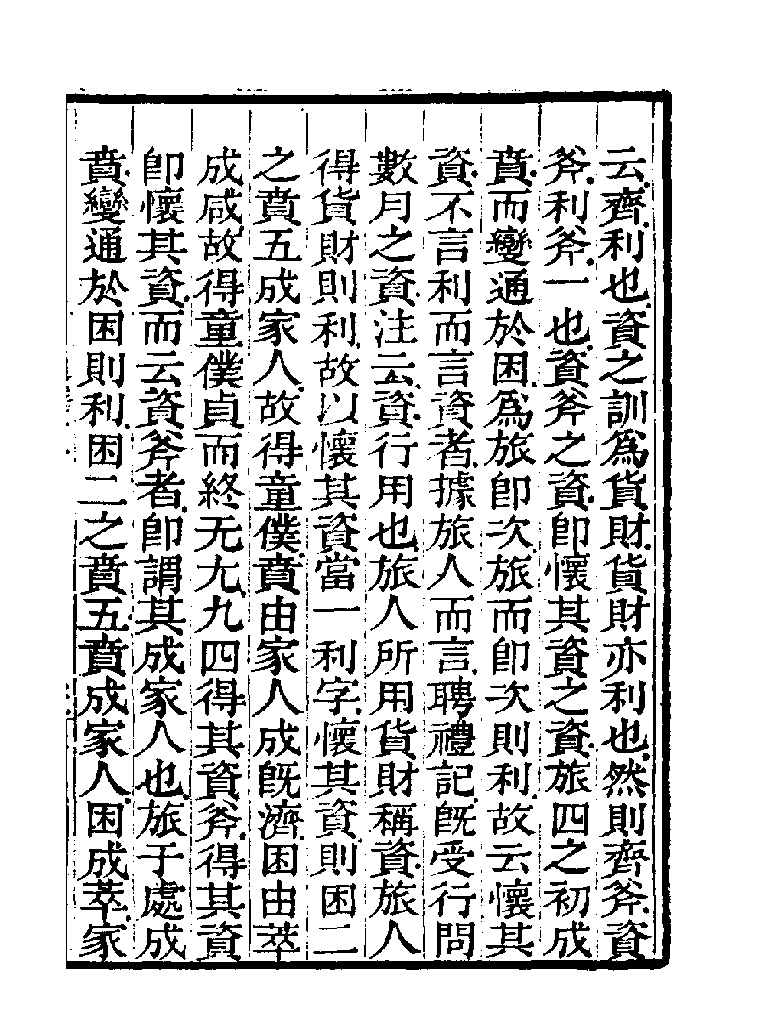 云齊利也資之訓爲貨財貨財亦利也然則齊斧資
斧利斧一也資斧之資即懷其資之資旅四之初成
賁而變通於困爲旅即次旅而即次則利故云懷其
資不言利而言資者據旅人而言聘禮記既受行問
數月之資注云資行用也旅人所用貨財稱資旅人
得貨財則利故以懷其資當一利字懷其資則困二
之賁五成家人故得童僕賁由家人成既濟困由萃
成咸故得童僕貞而終无尤九四得其資斧得其資
即懷其資而云資斧者即謂其成家人也旅于處成
賁變通於困則利困二之賁五賁成家人困成萃家